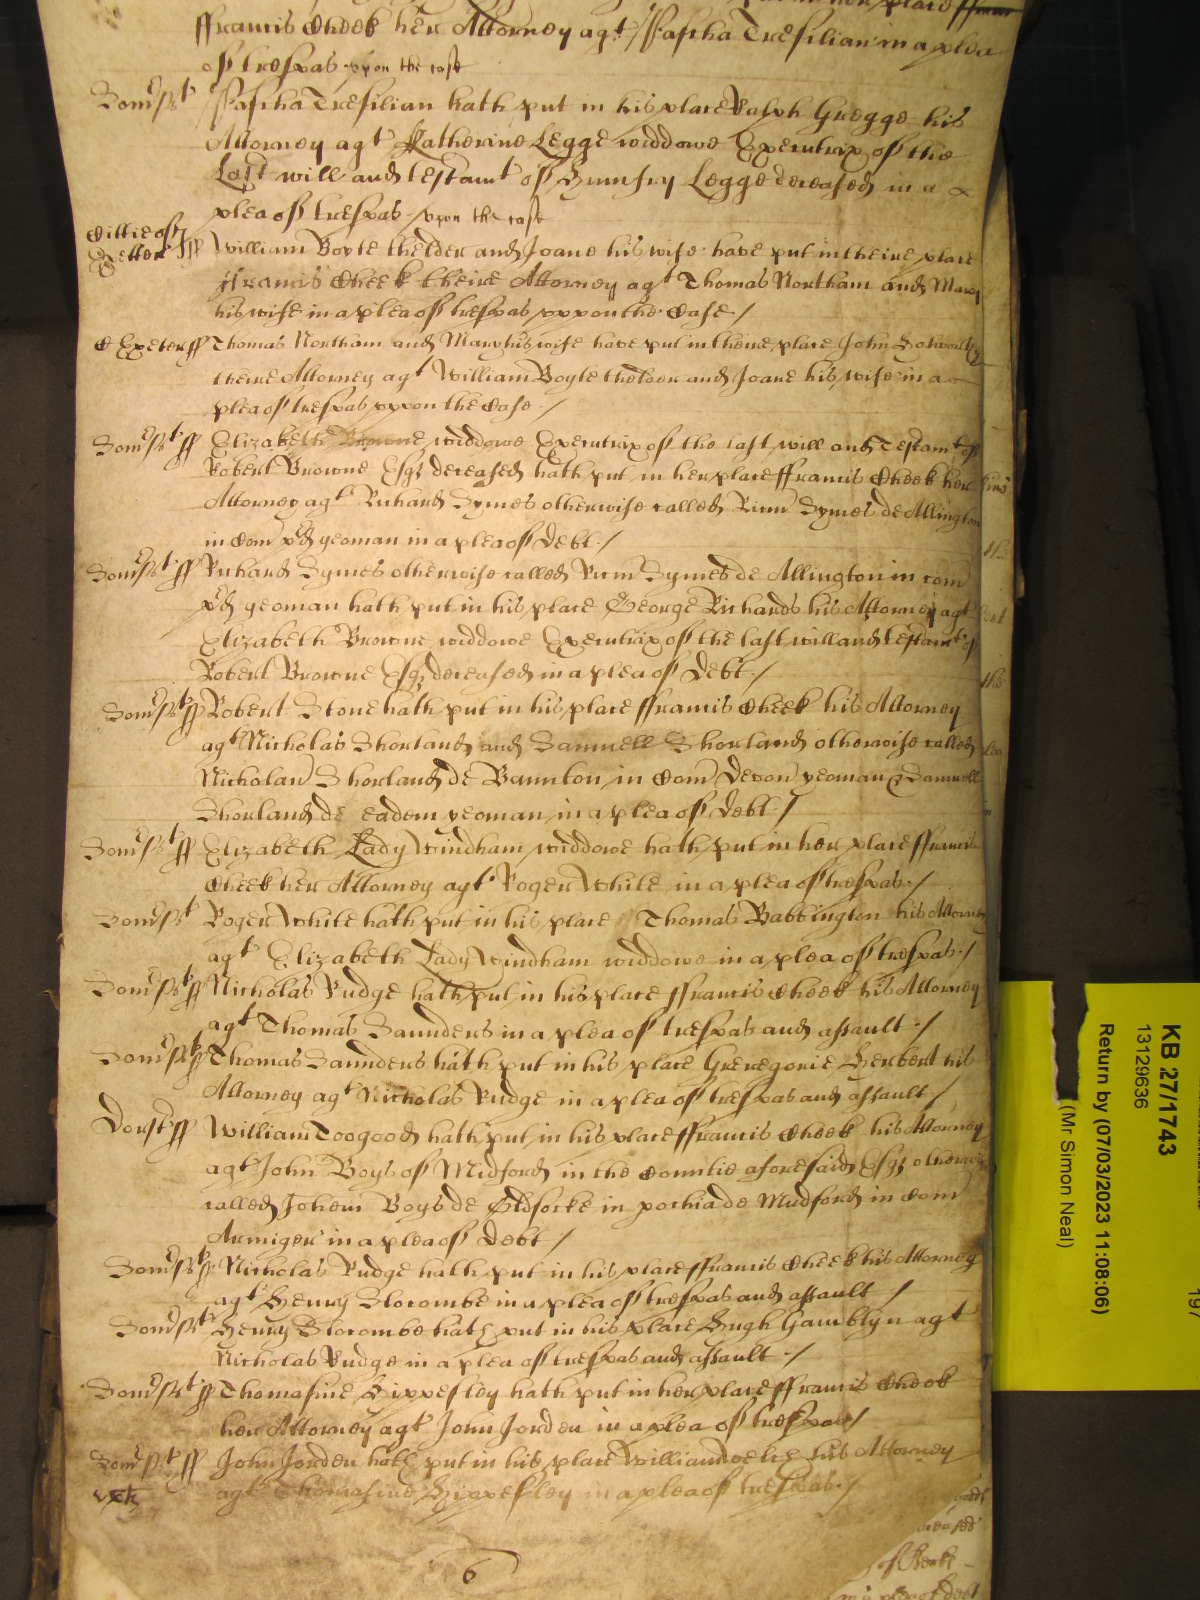 ffrancis Cheek her Attorney agt Pascha Tresilian in a plea
of trespas upon the case
Somst Pascha Tresilian hath put in his place Ralph Gregge his
Attorney agt Katherine Legge widdowe Executrix of the
Last will and testamt of Humfry Legge deceased in a
plea of trespas upon the case
Cittie of
Exeter ff William Boyle thelder and Joane his wife have put in theire place
ffrancis Cheek theire Attorney agt Thomas Northam and Mary
his wife in a plea of trespas uppon the Case /
C Exeter ff Thomas Northam and Mary his wife have put in theire place John
theire Attorney agt William Boyle thelder and Joane his wife in a
plea of trespas uppon the Case /
Somst ff Elizabeth Browne widdowe Executrix of the last will and Testamt of
Robert Browne Esqr deceased hath put in her place ffrancis Cheek her
Attorney agt Richard Symes otherwise called Ricm Symes de Allington
in Com pd yeoman in a plea of Debt /
Somst ff Richard Symes otherwise called Ricm Symes de Allington in com
pd yeoman hath put in his place George Richards his Attorney agt
Elizabeth Browne widdowe Executrix of the last will and testamt of
Robert Browne Esqr deceased in a plea of Debt /
Somst ff Robert Stone hath put in his place ffrancis Cheek his Attorney
agt Nicholas Shorland and Samuell Shorland otherwise called
Nicholau Shorland de Baunton in Com Devon yeoman & Samuell
Shorland de eadem yeoman in a plea of Debt /
Somst ff Elizabeth Lady Windham widdowe hath put in her place ffrancis
Cheek her Attorney agt Roger White in a plea of trespas /
Somst Roger White hath put in his place Thomas Babbington his Attorney
agt Elizabeth Lady Windham widdowe in a plea of trespas /
Somst ff Nicholas Rudge hath put in his place ffrancis Cheek his Attorney
agt Thomas Saunders in a plea of trespas and assault /
Somst ff Thomas Saunders hath put in his place Greregorie Herbert his
Attorney agt Nicholas Rudge in a plea of trespas and assault /
Dorst ff William Toogood hath put in his place ffrancis Cheek his Attorney
agt John Boys of Midford in the Countie aforesaid Esqr otherwise
called Johem Boys de Oldsocke in pochia de Mudford in Com
Armiger in a plea of Debt /
Somst ff Nicholas Rudge hath put in his place ffrancis Cheek his Attorney
agt Henry Slocombe in a plea of trespas and assault /
Somst Henry Slocombe hath put in his place Hugh Gamblyn agt
Nicholas Rudge in a plea of trespas and assault /
Somst ff Thomasine Hippesley hath put in her place ffrancis Cheek
her Attorney agt John Jorden in a plea of trespas /
Somst ff John Jorden hath put in his place William his Attorney
agt Thomasine Hippesley in a plea of trespas /
6
KB 27/1743
13129636
Return by (07/03/2023 11:08:06)
(Mr Simon Neal)